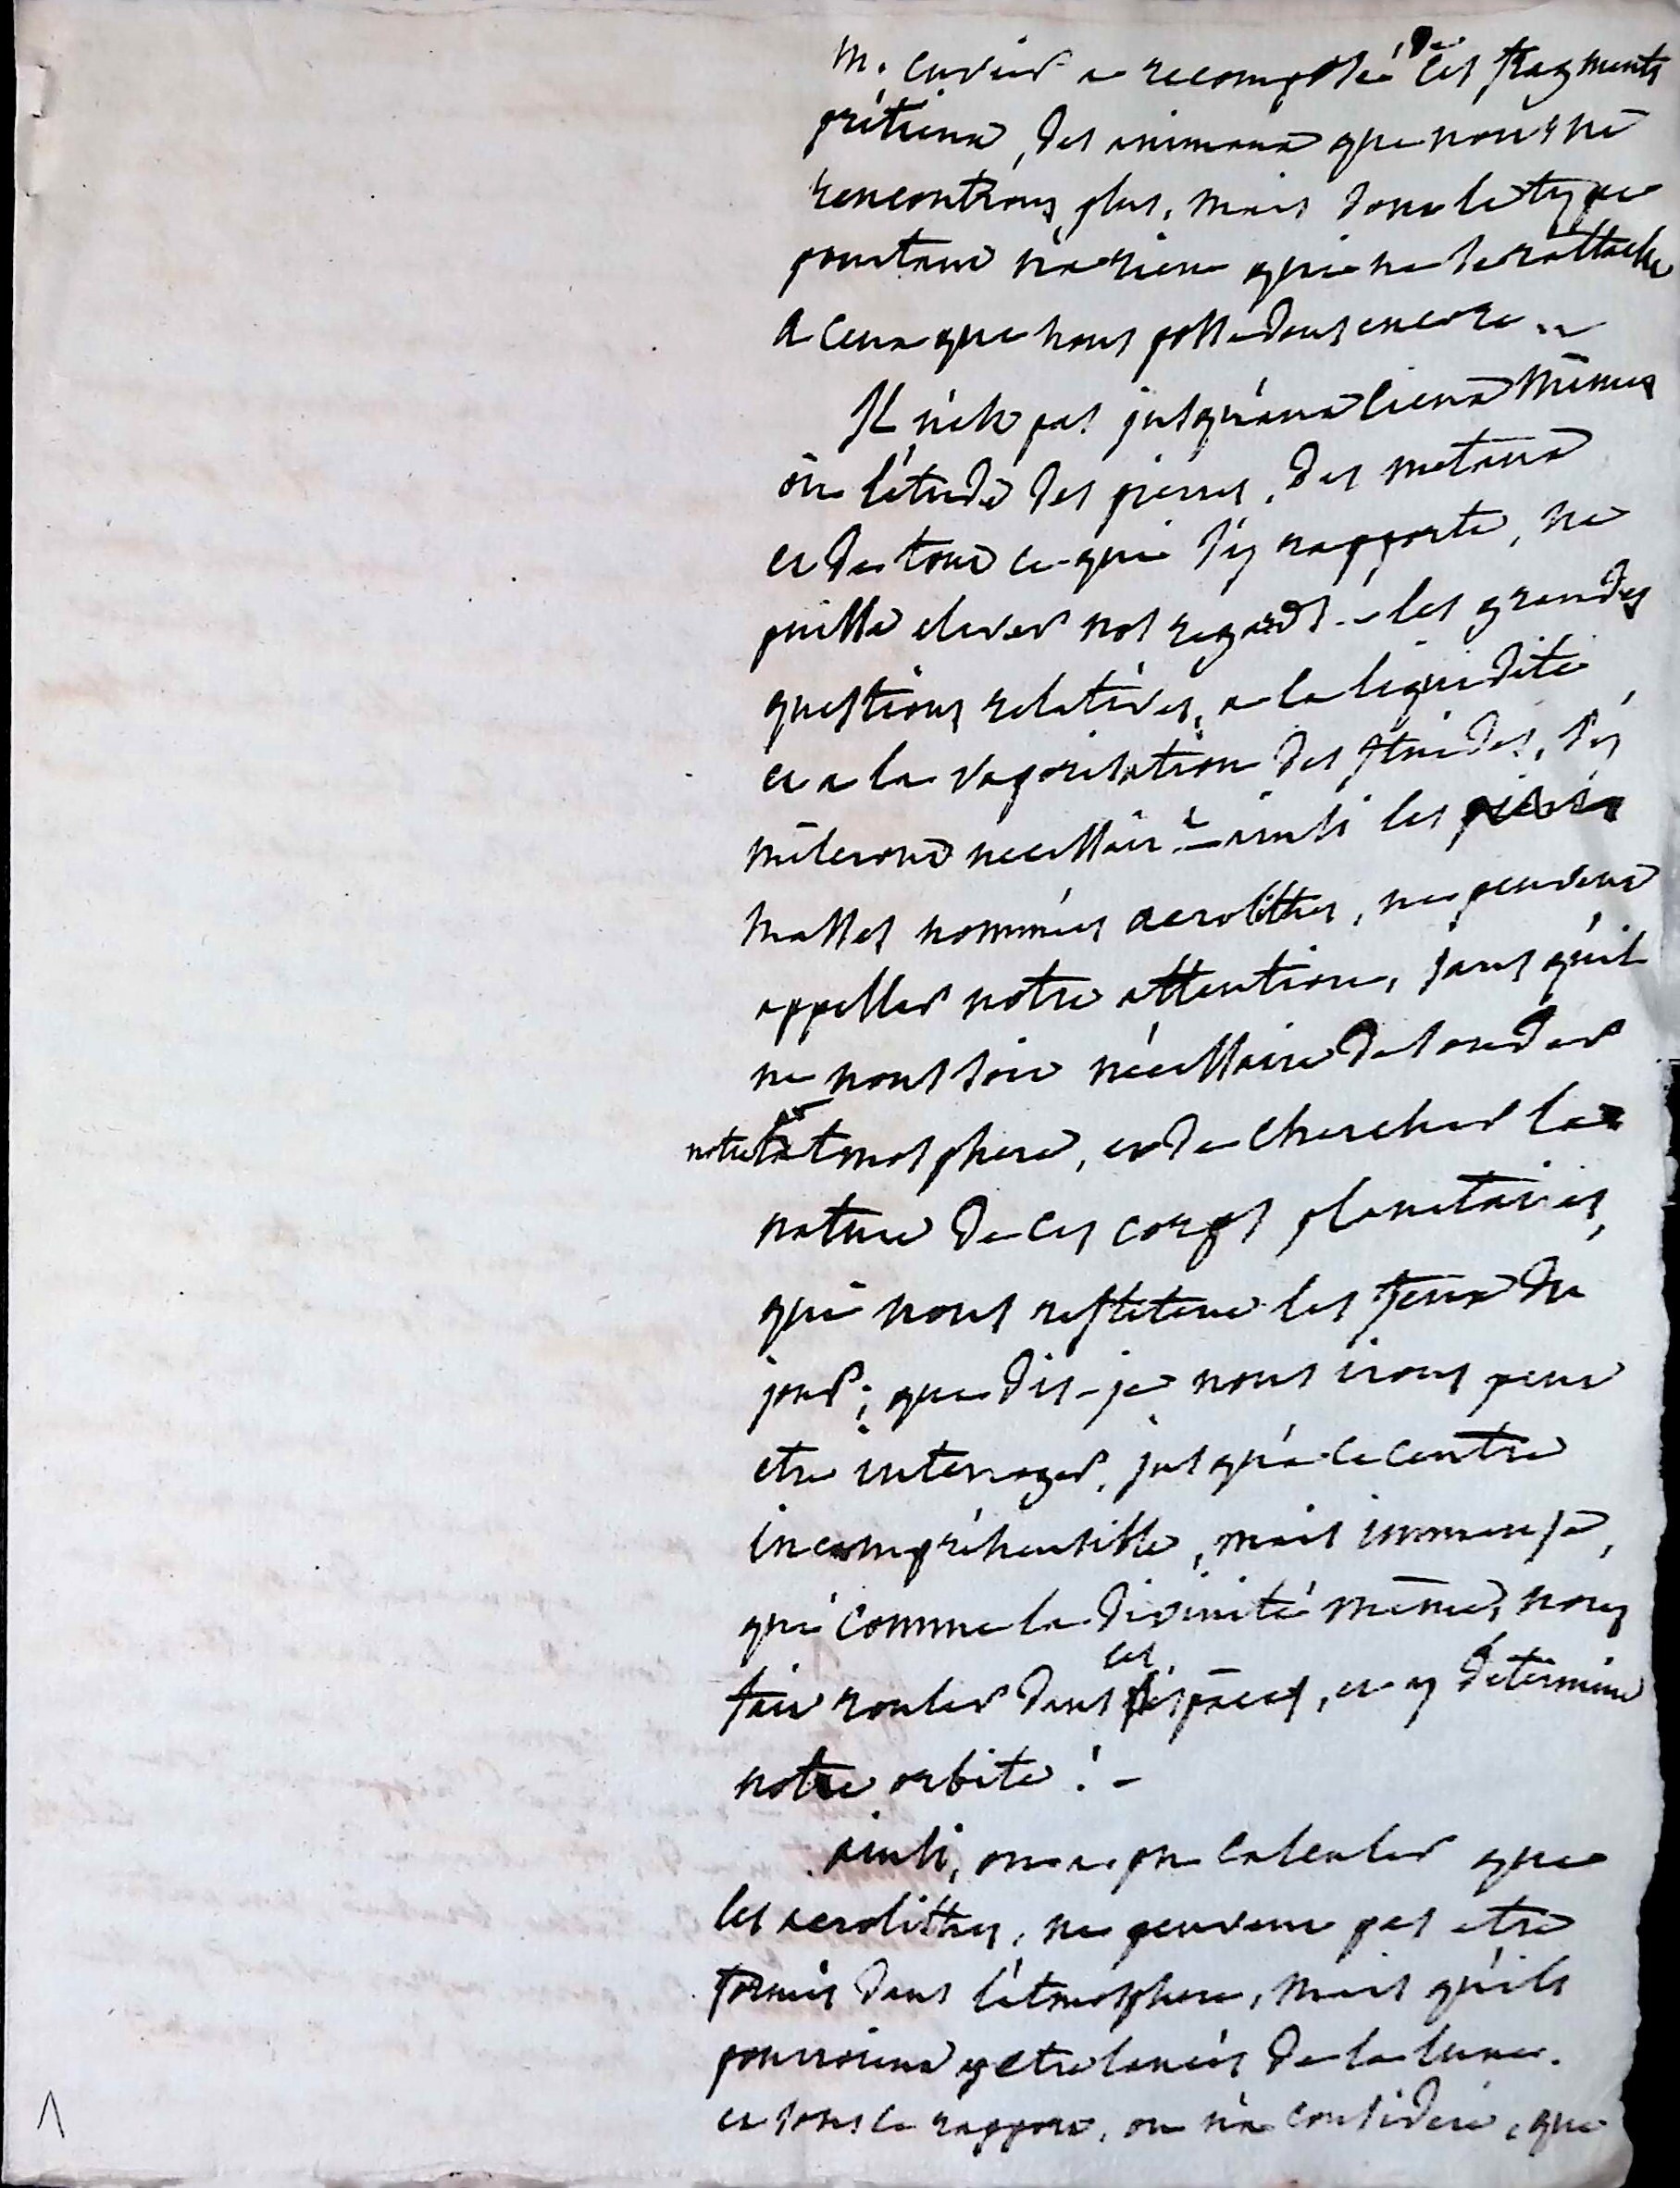 M. Cuvier a recomposé, de ces fragments
prétieux, des animaux que nous ne
rencontrons plus, mais dont le type
pourtant n'a rien qui ne se rattache
a ceux que nous possedons encore ..
Il n'est pas jusqu'aux lieux mêmes
ou l'étude des pierres, des metaux
et de tout ce qui s'y rapporte, ne
puisse elever nos regards - les grandes
questions relatives, a la liquidité
et a la vaporisation des fluides, s'y
mêleront necessair.t - ainsi les
masses nommées aerolithes, ne peuvent
appeller notre attention, sans qu'il
ne nous soit nécessaire de sonder
notre atmosphere, et de chercher la
nature de ces corps planetaires,
qui nous refletent les feux du
jour; que dis-je nous irons peut
etre interroger, jusqu'a ce centre
incompréhensible, mais immense,
qui comme la divinité même, nous
fait rouler dans les espaces, et y determine
notre orbite! -
ainsi, on a pu calculer que
les aerolithes, ne peuvent pas etre
formés dans l'atmosphere, mais qu'ils
pourroient y etre lancés de la lune.
et sous ce rapport, on n'a consideré, que